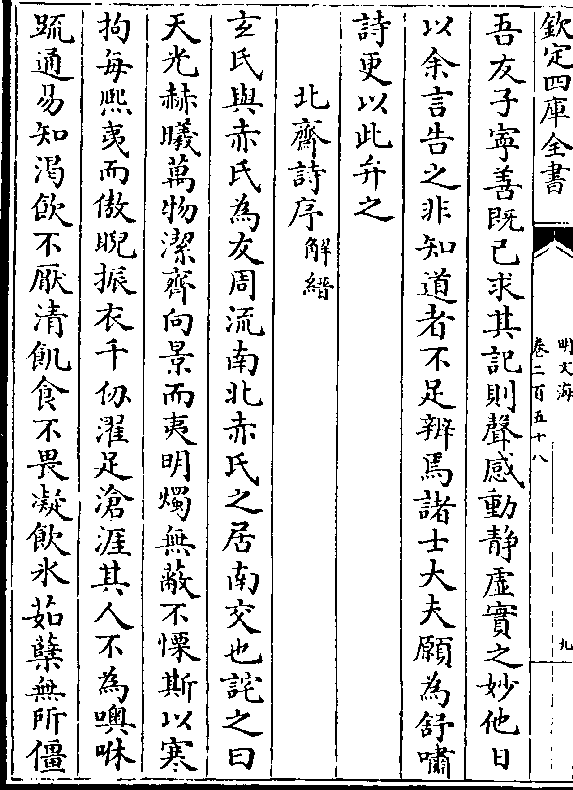 欽定四庫全書
明文海
卷二百五十八
九
吾友子寧善既已求其記則聲感動静虚實之妙他日
以余言告之非知道者不足辨焉諸士大夫願為舒嘯
詩更以此弁之
北齋詩序 解縉
玄氏與赤氏為友周流南北赤氏之居南交也詫之曰
天光赫曦萬物潔齊向景而夷明燭無蔽不慄斯以寒
拘每熙夷而傲睨振衣千仭濯足滄涯其人不為噢咻
䟽通易知渴飲不厭清飢食不畏凝飲氷茹蘖無所僵